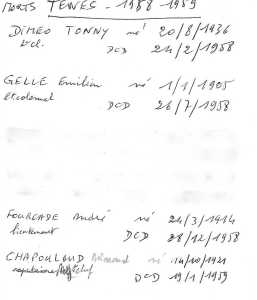 MORTS TENES - 1958 1959
DIMEO TONNY né 20/8/1936
DCD 24/2/1958
GELLE Emilien né 1/1/1905
ex colonel DCD 26/7/1958
FOURCADE André né 24/3/1914
lieutenant DCD 28/12/1958
CHAPOULAUD né 14/10/1921
DCD 19/1/1959